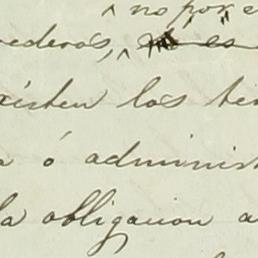 no por e
ederos,
xisten los te
a ó administ
la obligacion a